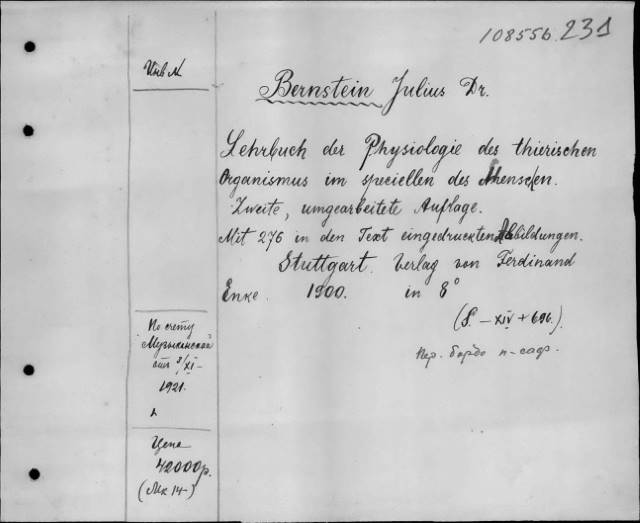 108556. 231
Инв №
Bernstein Julius Dr.
Lehrbuch der Physiologie des thierischen
Organismus im speciellen des Menschen.
Zweite, umgearbeitete Auflage.
Mit 276 in den Text eingedruckten Abbildungen.
Stuttgart. Verlag von Ferdinand
Enke. 1900. in 8°
(S. – XIV + 696.)
Пер. бордо п-саф.
По счету
от 3/XI –
1921.
Цена
42000 р.
(Мк 14–)